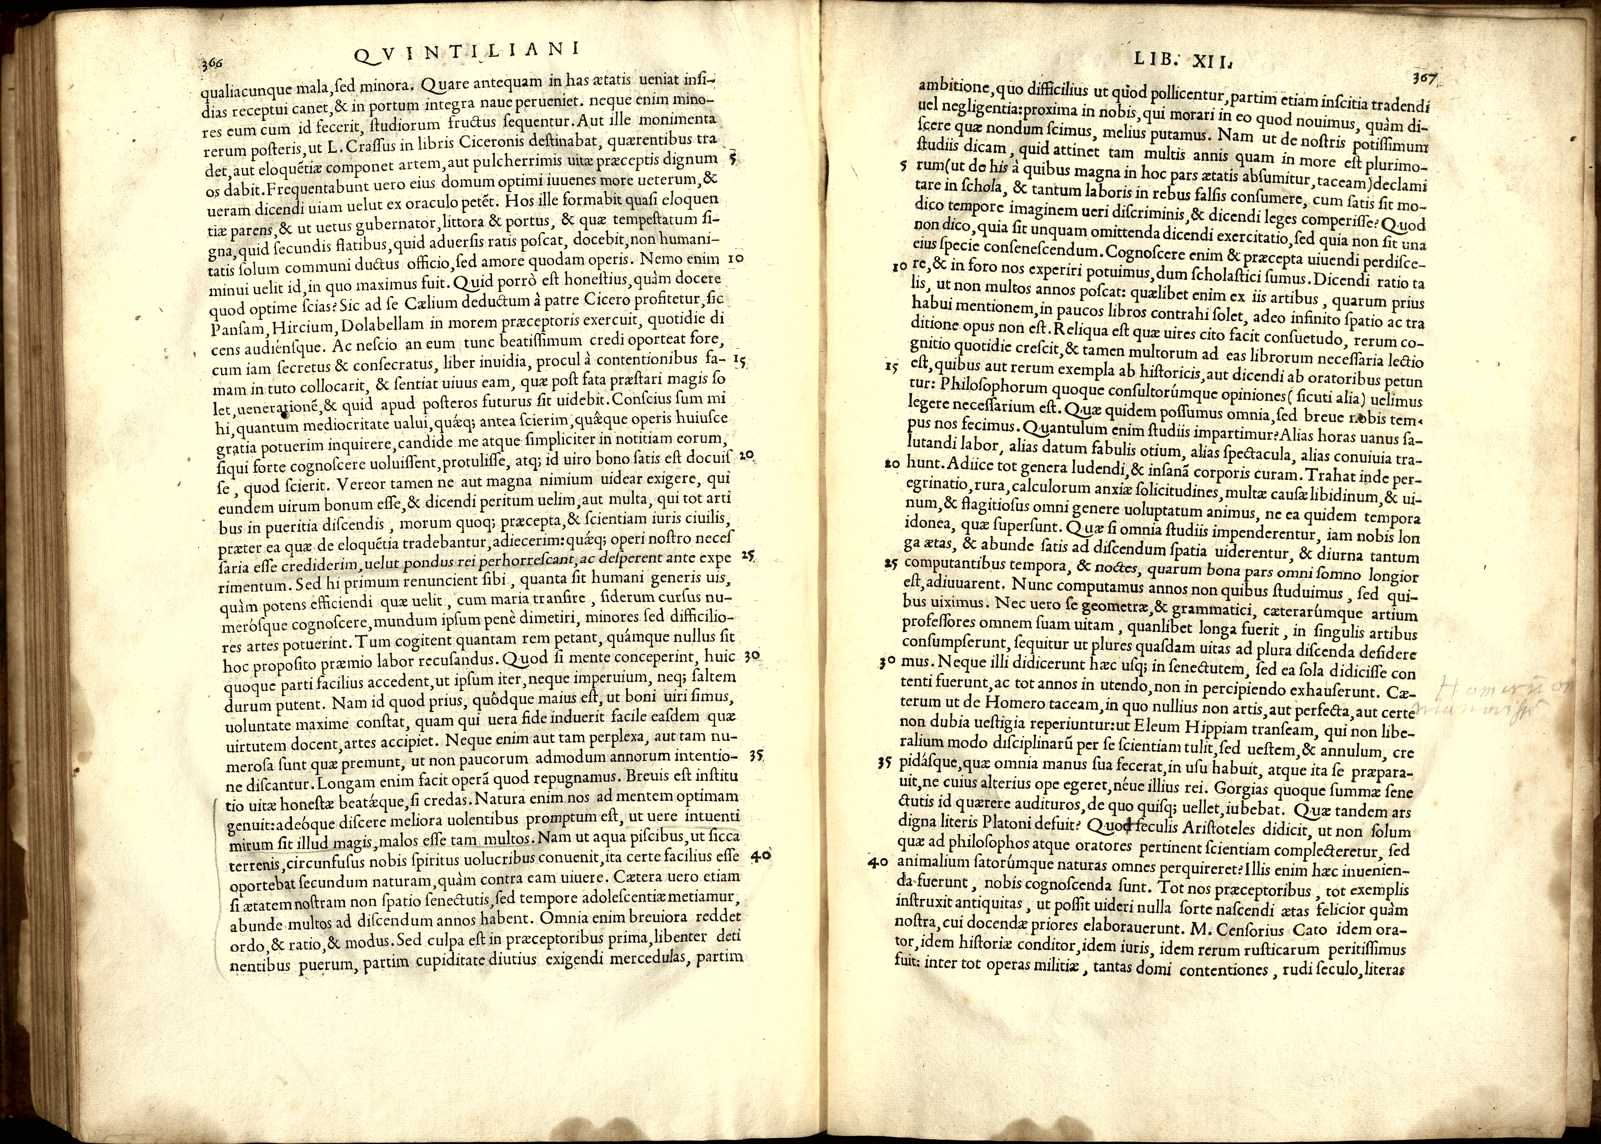 366
QVINTILIANI
qualiacunque mala,sed minora. Quare antequam in has ætatis ueniat insi-
dias receptui canet,& in portum integra naue perueniet. neque enim mino-
res eum cum id fecerit, studiorum fructus sequentur. Aut ille monimenta
rerum posteris,ut L. Crassus in libris Ciceronis destinabat, quærentibus tra
det,aut eloquẽtiæ componet artem,aut pulcherrimis uitæ præceptis dignum 5
os dabit.Frequentabunt uero eius domum optimi iuuenes more ueterum,&
ueram dicendi uiam uelut ex oraculo petẽt. Hos ille formabit quasi eloquen
tiæ parens,& ut uetus gubernator,littora & portus, & quæ tempestatum si-
gna,quid secundis flatibus,quid aduersis ratis poscat, docebit,non humani-
tatis solum communi ductus officio,sed amore quodam operis. Nemo enim 10
minui uelit id,in quo maximus fuit. Quid porrò est honestius,quàm docere
quod optime scias?Sic ad se Cælium deductum à patre Cicero profitetur,sic
Pansam,Hircium,Dolabellam in morem præceptoris exercuit, quotidie di
cens audiẽnsque. Ac nescio an eum tunc beatissimum credi oporteat fore,
cum iam secretus & consecratus, liber inuidia, procul à contentionibus fa- 15
mam in tuto collocarit, & sentiat uiuus eam, quæ post fata præstari magis so
let,uenerationẽ,& quid apud posteros futurus sit uidebit.Conscius sum mi
hi,quantum mediocritate ualui,quæq; antea scierim,quæque operis huiusce
gratia potuerim inquirere,candide me atque simpliciter in notitiam eorum,
siqui forte cognoscere uoluissent,protulisse, atq; id uiro bono satis est docuis 20
se , quod scierit. Vereor tamen ne aut magna nimium uidear exigere, qui
eundem uirum bonum esse,& dicendi peritum uelim,aut multa, qui tot arti
bus in pueritia discendis , morum quoq; præcepta,& scientiam iuris ciuilis,
præter ea quæ de eloquẽtia tradebantur,adiecerim:quæq; operi nostro neces
saria esse crediderim,uelut pondus rei perhorrescant,ac desperent ante expe 25
rimentum. Sed hi primum renuncient sibi , quanta sit humani generis uis,
quàm potens efficiendi quæ uelit , cum maria transire , siderum cursus nu-
merósque cognoscere,mundum ipsum penè dimetiri, minores sed difficilio-
res artes potuerint. Tum cogitent quantam rem petant, quámque nullus sit
hoc proposito præmio labor recusandus. Quod si mente conceperint, huic 30
quoque parti facilius accedent,ut ipsum iter,neque imperuium, neq; saltem
durum putent. Nam id quod prius, quódque maius est, ut boni uiri simus,
uoluntate maxime constat, quam qui uera fide induerit facile easdem quæ
uirtutem docent,artes accipiet. Neque enim aut tam perplexa, aut tam nu-
merosa sunt quæ premunt, ut non paucorum admodum annorum intentio- 35
ne discantur. Longam enim facit operã quod repugnamus. Breuis est institu
tio uitæ honestæ beatǽque,si credas. Natura enim nos ad mentem optimam
genuit:adeóque discere meliora uolentibus promptum est, ut uere intuenti
mirum sit illud magis,malos esse tam multos. Nam ut aqua piscibus,ut sicca
terrenis,circunfusus nobis spiritus uolucribus conuenit,ita certe facilius esse 40
oportebat secundum naturam,quàm contra eam uiuere. Cætera uero etiam
si ætatem nostram non spatio senectutis,sed tempore adolescentiæ metiamur,
abunde multos ad discendum annos habent. Omnia enim breuiora reddet
ordo,& ratio,& modus. Sed culpa est in præceptoribus prima,libenter deti
nentibus puerum, partim cupiditate diutius exigendi mercedulas, partim
LIB. XII.
367
ambitione,quo difficilius ut quòd pollicentur,partim etiam inscitia tradendi
uel negligentia:proxima in nobis,qui morari in eo quod nouimus, quàm di-
scere quæ nondum scimus, melius putamus. Nam ut de nostris potissimum
studiis dicam , quid attinet tam multis annis quam in more est plurimo-
5 rum(ut de his à quibus magna in hoc pars ætatis absumitur,taceam)declami
tare in schola, & tantum laboris in rebus falsis consumere, cum satis sit mo-
dico tempore imaginem ueri discriminis,& dicendi leges comperisse? Quod
non dico,quia sit unquam omittenda dicendi exercitatio,sed quia non sit una
eius specie consenescendum.Cognoscere enim & præcepta uiuendi perdisce-
10 re,& in foro nos experiri potuimus,dum scholastici sumus.Dicendi ratio ta
lis, ut non multos annos poscat: quælibet enim ex iis artibus , quarum prius
habui mentionem,in paucos libros contrahi solet, adeo infinito spatio ac tra
ditione opus non est. Reliqua est quæ uires cito facit consuetudo, rerum co-
gnitio quotidie crescit,& tamen multorum ad eas librorum necessaria lectio
15 est,quibus aut rerum exempla ab historicis,aut dicendi ab oratoribus petun
tur: Philosophorum quoque consultorúmque opiniones( sicuti alia) uelimus
legere necessarium est. Quæ quidem possumus omnia,sed breue nobis tem-
pus nos fecimus. Quantulum enim studiis impartimur?Alias horas uanus sa-
lutandi labor, alias datum fabulis otium, alias spectacula, alias conuiuia tra-
20 hunt. Adiice tot genera ludendi,& insanã corporis curam. Trahat inde per-
egrinatio,rura,calculorum anxiæ solicitudines,multæ causæ libidinum,& ui-
num,& flagitiosus omni genere uoluptatum animus, ne ea quidem tempora
idonea, quæ supersunt. Quæ si omnia studiis impenderentur, iam nobis lon
ga ætas, & abunde satis ad discendum spatia uiderentur, & diurna tantum
25 computantibus tempora, & noctes, quarum bona pars omni somno longior
est,adiuuarent. Nunc computamus annos non quibus studuimus , sed qui-
bus uiximus. Nec uero se geometræ,& grammatici, cæterarúmque artium
professores omnem suam uitam , quanlibet longa fuerit , in singulis artibus
consumpserunt, sequitur ut plures quasdam uitas ad plura discenda desidere
30 mus. Neque illi didicerunt hæc usq; in senectutem, sed ea sola didicisse con
tenti fuerunt,ac tot annos in utendo,non in percipiendo exhauserunt. Cæ-
terum ut de Homero taceam,in quo nullius non artis,aut perfecta,aut certe
non dubia uestigia reperiuntur:ut Eleum Hippiam transeam, qui non libe-
ralium modo disciplinarũ per se scientiam tulit,sed uestem,& annulum, cre
35 pidásque,quæ omnia manus sua fecerat,in usu habuit, atque ita se præpara-
uit,ne cuius alterius ope egeret,néue illius rei. Gorgias quoque summæ sene
ctutis id quærere audituros,de quo quisq; uellet,iubebat. Quæ tandem ars
digna literis Platoni defuit? Quod seculis Aristoteles didicit, ut non solum
quæ ad philosophos atque oratores pertinent scientiam complecteretur, sed
40 animalium satorúmque naturas omnes perquireret?Illis enim hæc inuenien-
da fuerunt , nobis cognoscenda sunt. Tot nos præceptoribus , tot exemplis
instruxit antiquitas , ut possit uideri nulla sorte nascendi ætas felicior quàm
nostra, cui docendæ priores elaborauerunt. M. Censorius Cato idem ora-
tor,idem historiæ conditor,idem iuris, idem rerum rusticarum peritissimus
fuit: inter tot operas militiæ , tantas domi contentiones , rudi seculo,literas